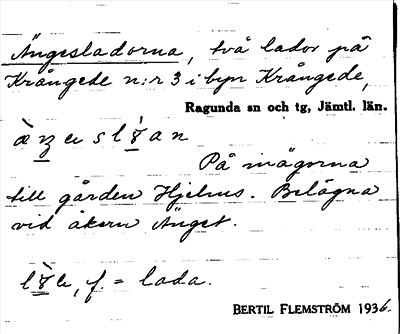 Ängesladorna, två lador på
Krångede n:r 3 i byn Krångede,
Ragunda sn och tg, Jämtl. län.
På inägorna
till gården Hjelms. Belägna
vid åkern Änget.
f. = lada.
BERTIL FLEMSTRÖM 1936.